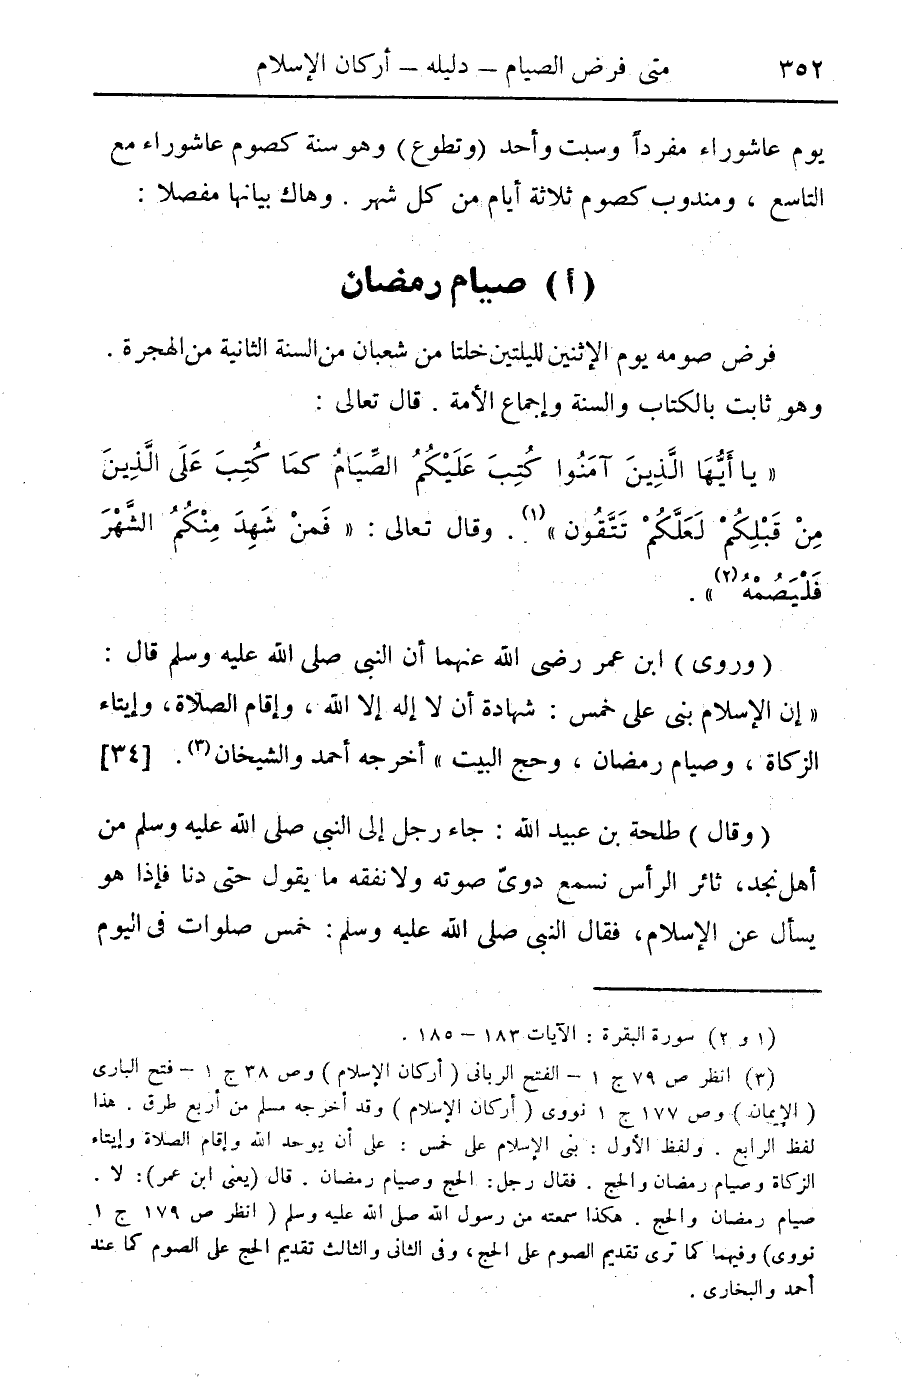 ٣٥٢ متى فرض الصيام – دليله – أركان الإسلام
يوم عاشوراء مفرداً وسبت وأحد (وتطوع) وهو سنة كصوم عاشوراء مع
التاسع ، ومندوب كصوم ثلاثة أيام من كل شهر . وهاك بيانها مفصلا :
(أ) صيام رمضان
فرض صومه يوم الإثنين لليلتين خلتا من شعبان من السنة الثانية من الهجرة .
وهو ثابت بالكتاب والسنة وإجماع الأمة . قال تعالى :
« يا أَيُّهَا الَّذِينَ آمَنُوا كُتِبَ عَلَيْكُمُ الصِّيَامُ كَمَا كُتِبَ عَلَى الَّذِينَ
مِنْ قَبْلِكُمْ لَعَلَّكُمْ تَتَّقُون »(١) . وقال تعالى : « فَمَنْ شَهِدَ مِنْكُمُ الشَّهْرَ
فَلْيَصُمْهُ(٢) » .
( وروى ) ابن عمر رضى الله عنهما أن النبى صلى الله عليه وسلم قال :
« إن الإسلام بنى على خمس : شهادة أن لا إله إلا الله ، وإقام الصلاة، وإيتاء
الزكاة ، وصيام رمضان ، وحج البيت » أخرجه أحمد والشيخان(٣) . [٣٤]
( وقال ) طلحة بن عبيد الله : جاء رجل إلى النبى صلى الله عليه وسلم من
أهل نجد، ثائر الرأس نسمع دوىّ صوته ولا نفقه ما يقول حتى دنا فإذا هو
يسأل عن الإسلام، فقال النبى صلى الله عليه وسلم : خمس صلوات فى اليوم
(١ و ٢) سورة البقرة : الآيات ١٨٣ – ١٨٥ .
(٣) انظر ص ٧٩ ج ١ – الفتح الربانى ( أركان الإسلام ) وص ٣٨ ج ١ – فتح البارى
( الإيمان ) وص ١٧٧ ج ١ نووى ( أركان الإسلام ) وقد أخرجه مسلم من أربع طرق . هذا
لفظ الرابع . ولفظ الأول : بنى الإسلام على خمس : على أن يوحد الله وإقام الصلاة وإيتاء
الزكاة وصيام رمضان والحج . فقال رجل : الحج وصيام رمضان . قال (يعنى ابن عمر) : لا .
صيام رمضان والحج . هكذا سمعته من رسول الله صلى الله عليه وسلم ( انظر ص ١٧٩ ج ١
نووى) وفيهما كما ترى تقديم الصوم على الحج، وفى الثانى والثالث تقديم الحج على الصوم كما عند
أحمد والبخارى .